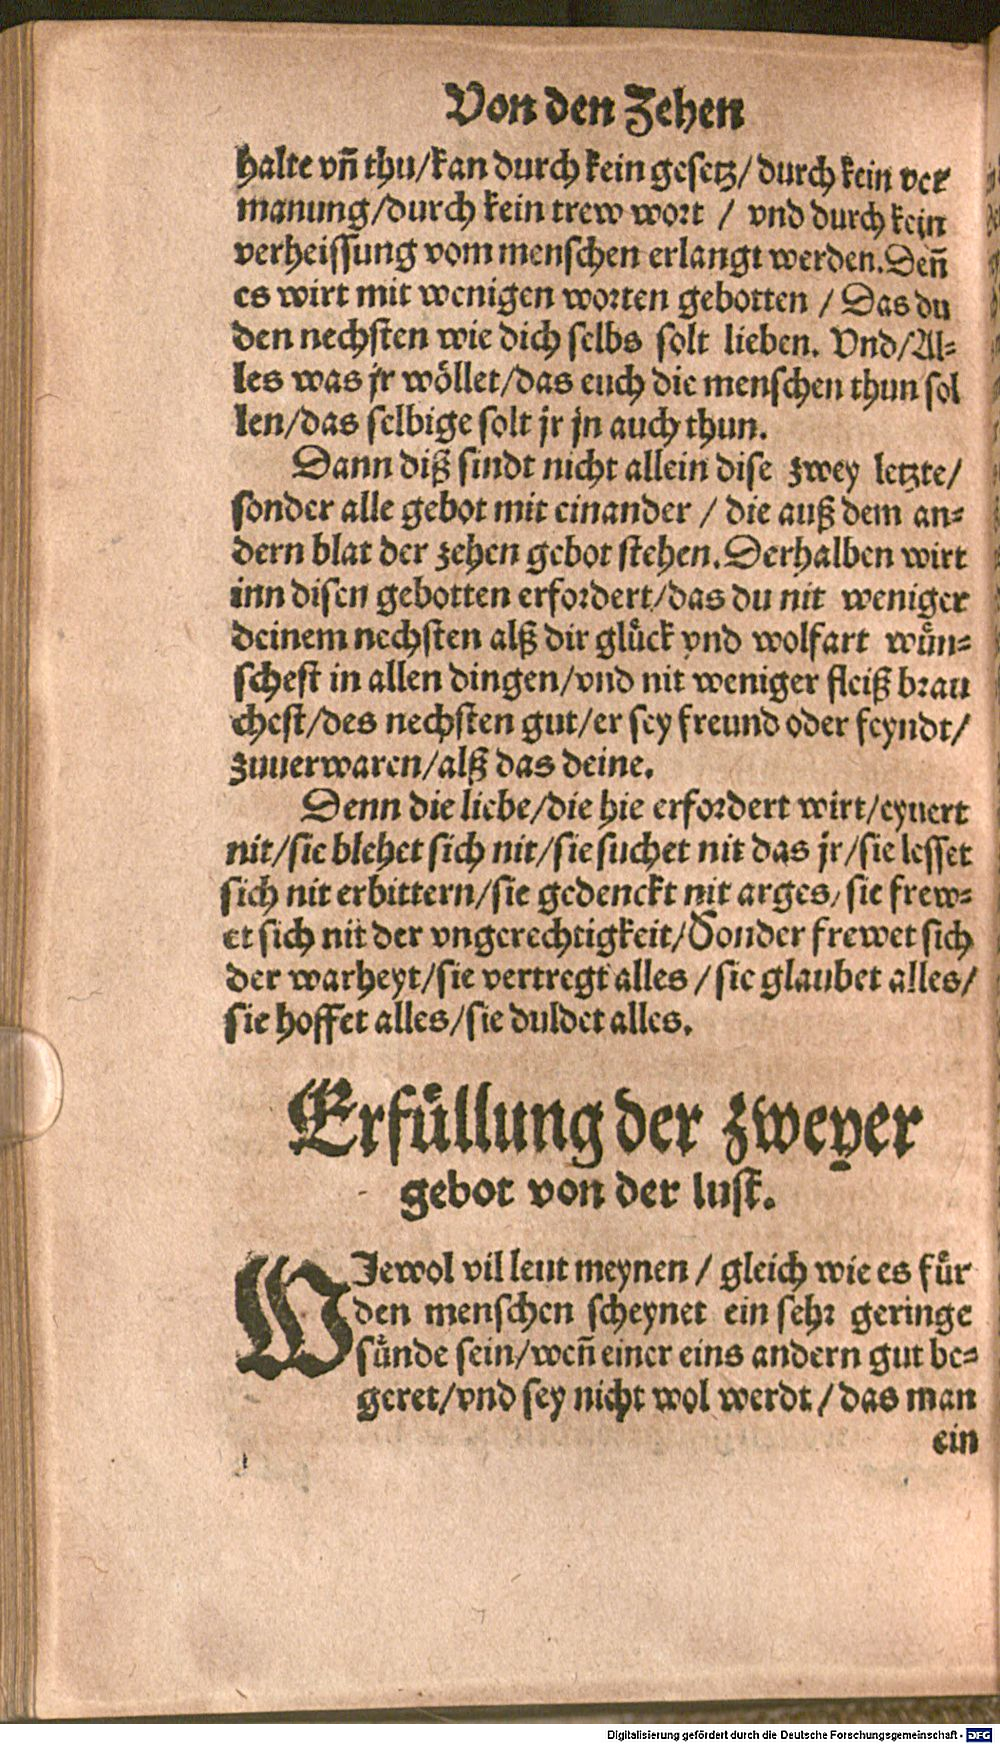 Von den Zehen
halte vñ thu/kan durch kein gesetz/ durch kein ver
manung/durch kein trew wort / vnd durch kein
verheissung vom menschen erlangt werden. Deñ
es wirt mit wenigen worten gebotten / Das du
den nechsten wie dich selbs solt lieben. Vnd/Al-
les was jr wöllet/das euch die menschen thun sol
len/das selbige solt jr jn auch thun.
Dann diß sindt nicht allein dise zwey letzte/
sonder alle gebot mit einander / die auß dem an-
dern blat der zehen gebot stehen. Derhalben wirt
inn disen gebotten erfordert/das du nit weniger
deinem nechsten alß dir glück vnd wolfart wün-
schest in allen dingen/vnd nit weniger fleiß brau
chest/des nechsten gut/er sey freund oder feyndt/
zuuerwaren/alß das deine.
Denn die liebe/die hie erfordert wirt/eyuert
nit/sie blehet sich nit/sie suchet nit das jr/sie lesset
sich nit erbittern/sie gedenckt nit arges/ sie frew-
et sich nit der vngerechtigkeit/Sonder frewet sich
der warheyt/sie vertregt alles / sie glaubet alles/
sie hoffet alles/sie duldet alles.
Erfüllung der zweyer
gebot von der lust.
WJewol vil leut meynen / gleich wie es für
den menschen scheynet ein sehr geringe
sünde sein/weñ einer eins andern gut be-
geret/vnd sey nicht wol werdt / das man
ein
Digitalisierung gefördert durch die Deutsche Forschungsgemeinschaft - DFG